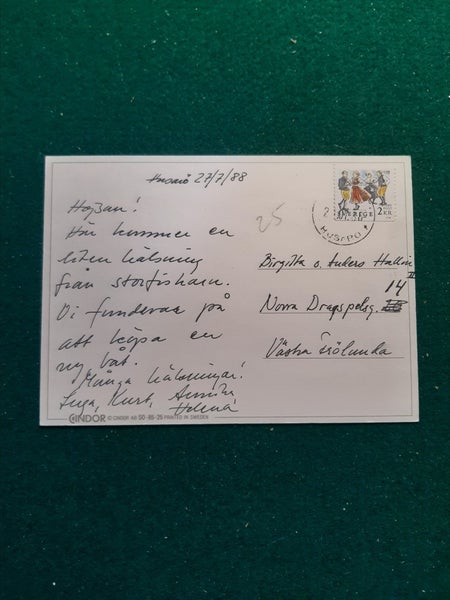 Husarö 27/7/88
Hojsan!
Här kommer en
liten hälsning
från storfiskarn.
Vi funderar på
att köpa en
ny båt.
Många hälsningar!
Inga, Kurt, Annika
Helena
25
SVERIGE 2 KR
HUSARÖ
Birgitta o. Anders Hallin
14
Norra Dragspelsg.
Västra Frölunda
CINDOR © CINDOR AB 50-85-25 PRINTED IN SWEDEN